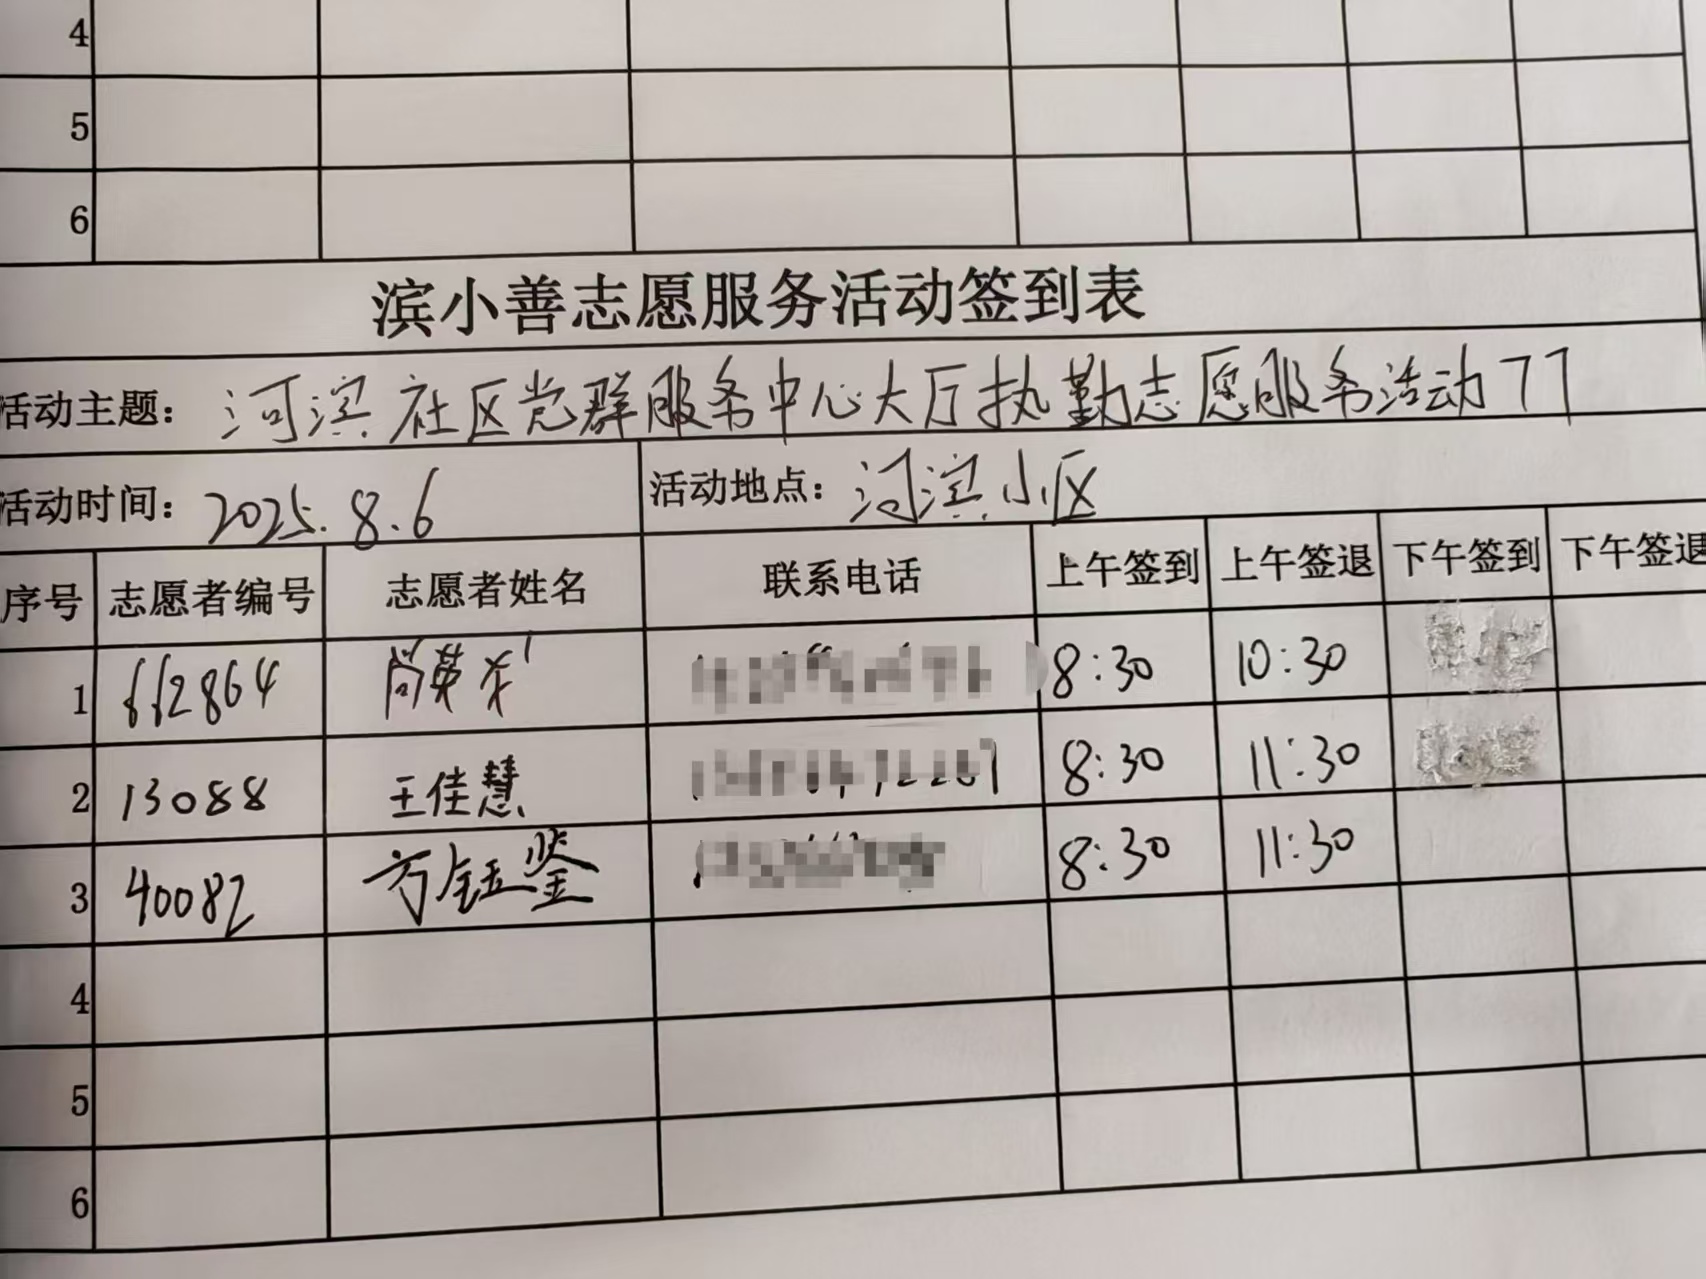 4
5
6
滨小善志愿服务活动签到表
活动主题：河滨社区党群服务中心大厅执勤志愿服务活动77
活动时间：2025.8.6 活动地点：河滨小区
序号 志愿者编号 志愿者姓名 联系电话 上午签到 上午签退 下午签到 下午签退
1 662864 尚英 8:30 10:30
2 13088 王佳慧 8:30 11:30
3 40082 方钰鉴 8:30 11:30
4
5
6